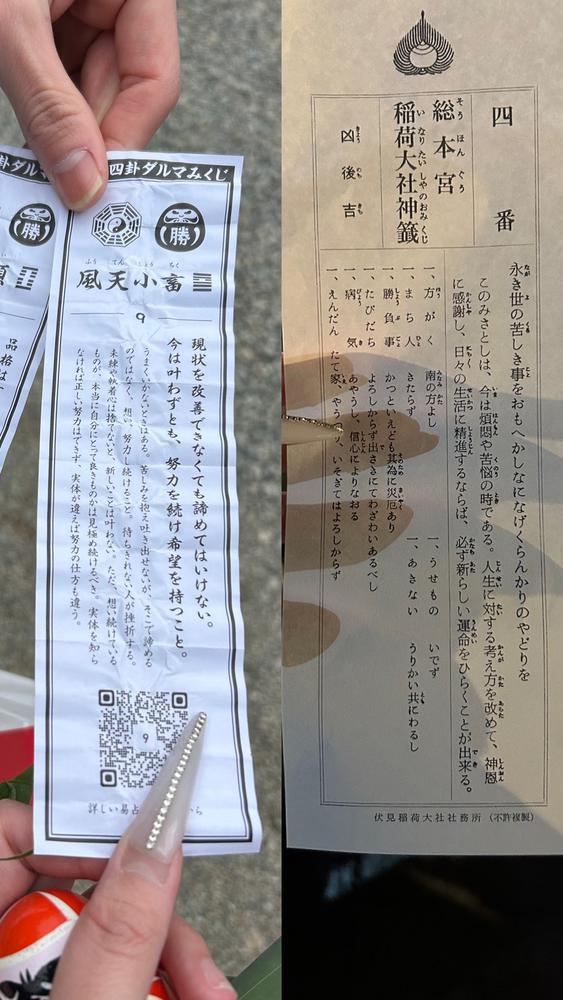 四卦ダルマみくじ
勝
勝
風天小畜
ふう てん しょう ちく
9
現状を改善できなくても諦めてはいけない。
今は叶わずとも、努力を続け希望を持つこと。
うまくいかないときはある。苦しみを抱え吐き出せないが、そこで諦める
のではなく、想い、努力し続けること。待ちきれない人が挫折する。
未練や執着は捨てないと、新しいことは叶わない。ただ、想い続けている
ものが、本当に自分にとって良きものかは見極め続けるべき。実体を知ら
なければ正しい努力はできず、実体が違えば努力の仕方も違う。
9
詳しい易占
から
品格は
四番
総本宮
そうほんぐう
稲荷大社神籤
いなりたいしゃのおみくじ
凶後吉
きょうのちきち
永き世の苦しき事をおもへかしなになげくらんかりのやどりを
このみさとしは、今は煩悶や苦悩の時である。人生に対する考え方を改めて、神恩
に感謝し、日々の生活に精進するならば、必ず新らしい運命をひらくことが出来る。
一、方がく 南の方よし
一、まち人 きたらず
一、勝負事 かつといえども其為に災厄あり
一、たびだち よろしからず出さきにてわざわいあるべし
一、病気 あやうし、信心によりなおる
一、えんだん たて家、やうつり、いそぎてはよろしからず
一、うせもの いでず
一、あきない うりかい共にわるし
伏見稲荷大社社務所 (不許複製)